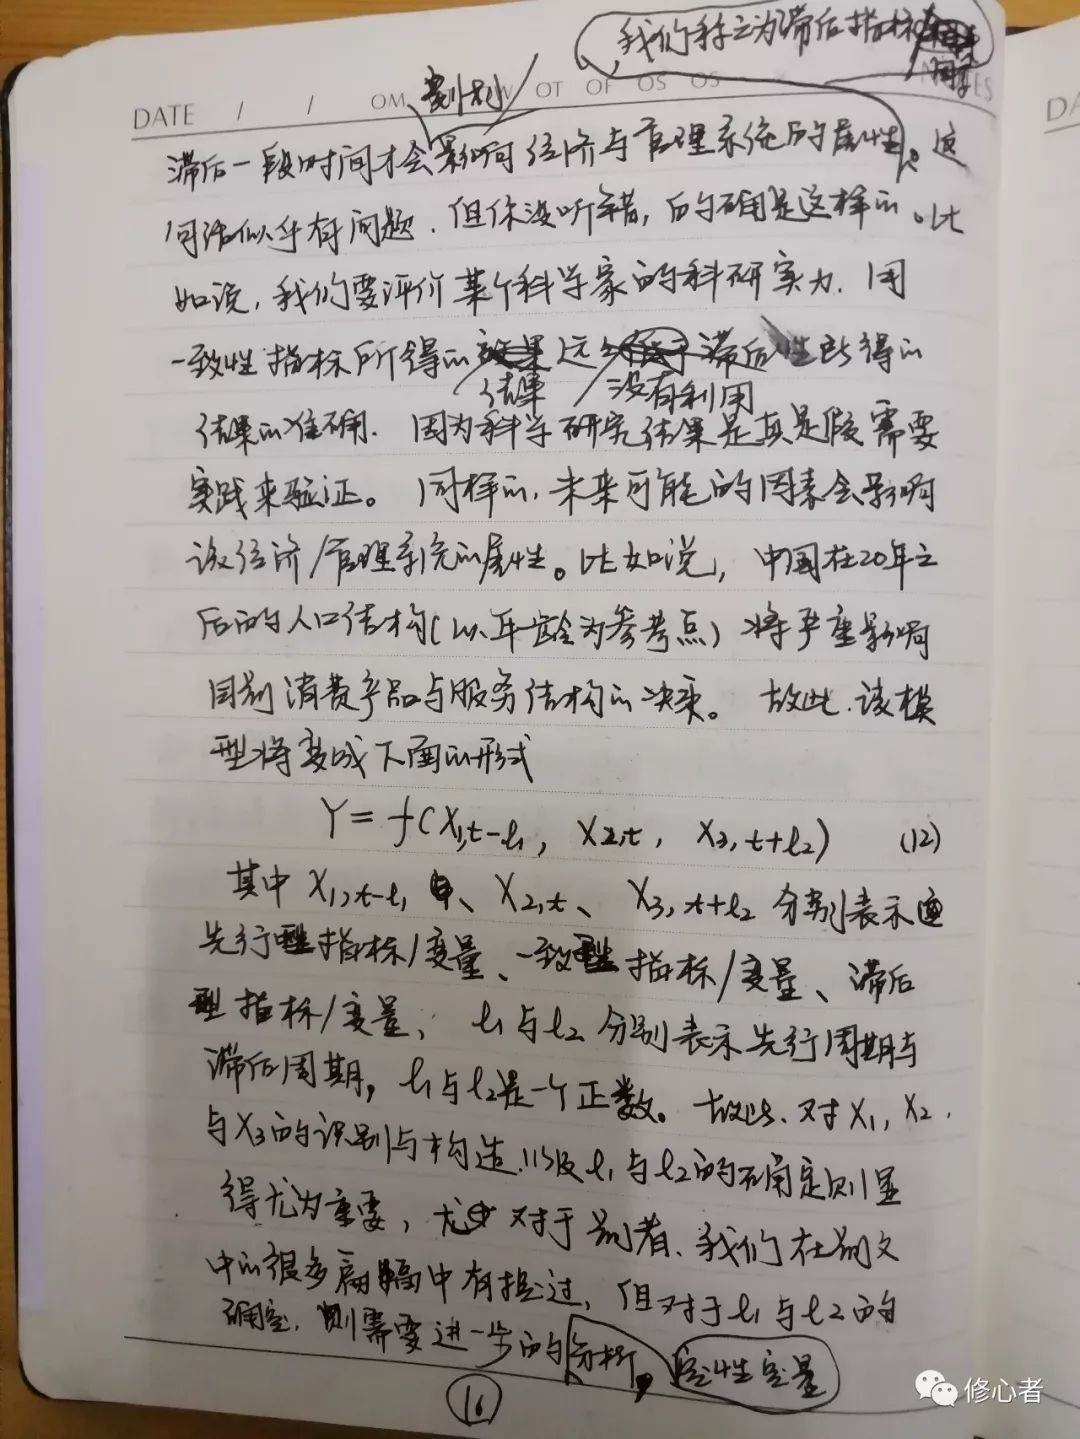 我们称之为滞后指标
DATE / / OM W OT OF OS OS NOTES
DA
刻划
滞后一段时间才会影响经济与管理系统的属性。这
句话似乎有问题.但你没听错,的确是这样的。比
如说,我们要评价某个科学家的科研实力.用
一致性指标所得的效果远不滞后性所得的
结果 没有利用
结果的准确.因为科学研究结果是真是假需要
实践来验证。同样的,未来可能的因素会影响
该经济/管理系统的属性。比如说,中国在20年之
后的人口结构(以年龄为参考点)将严重影响
目前消费产品与服务结构的决策。故此.该模
型将变成下面的形式
Y=f(X1,t-l1, X2,t, X3,t+l2) (12)
其中X1,t-l1、X2,t、X3,t+l2分别表示
先行型指标/变量、一致型指标/变量、滞后
型指标/变量;l1与l2分别表示先行周期与
滞后周期,l1与l2是一个正数。故此.对X1,X2,
与X3的识别与构造.以及l1与l2的确定则显
得尤为重要,对于前者.我们在前文
中的很多篇幅中有提过,但对于l1与l2的
确定,则需要进一步的分析,定性定量
16
修心者